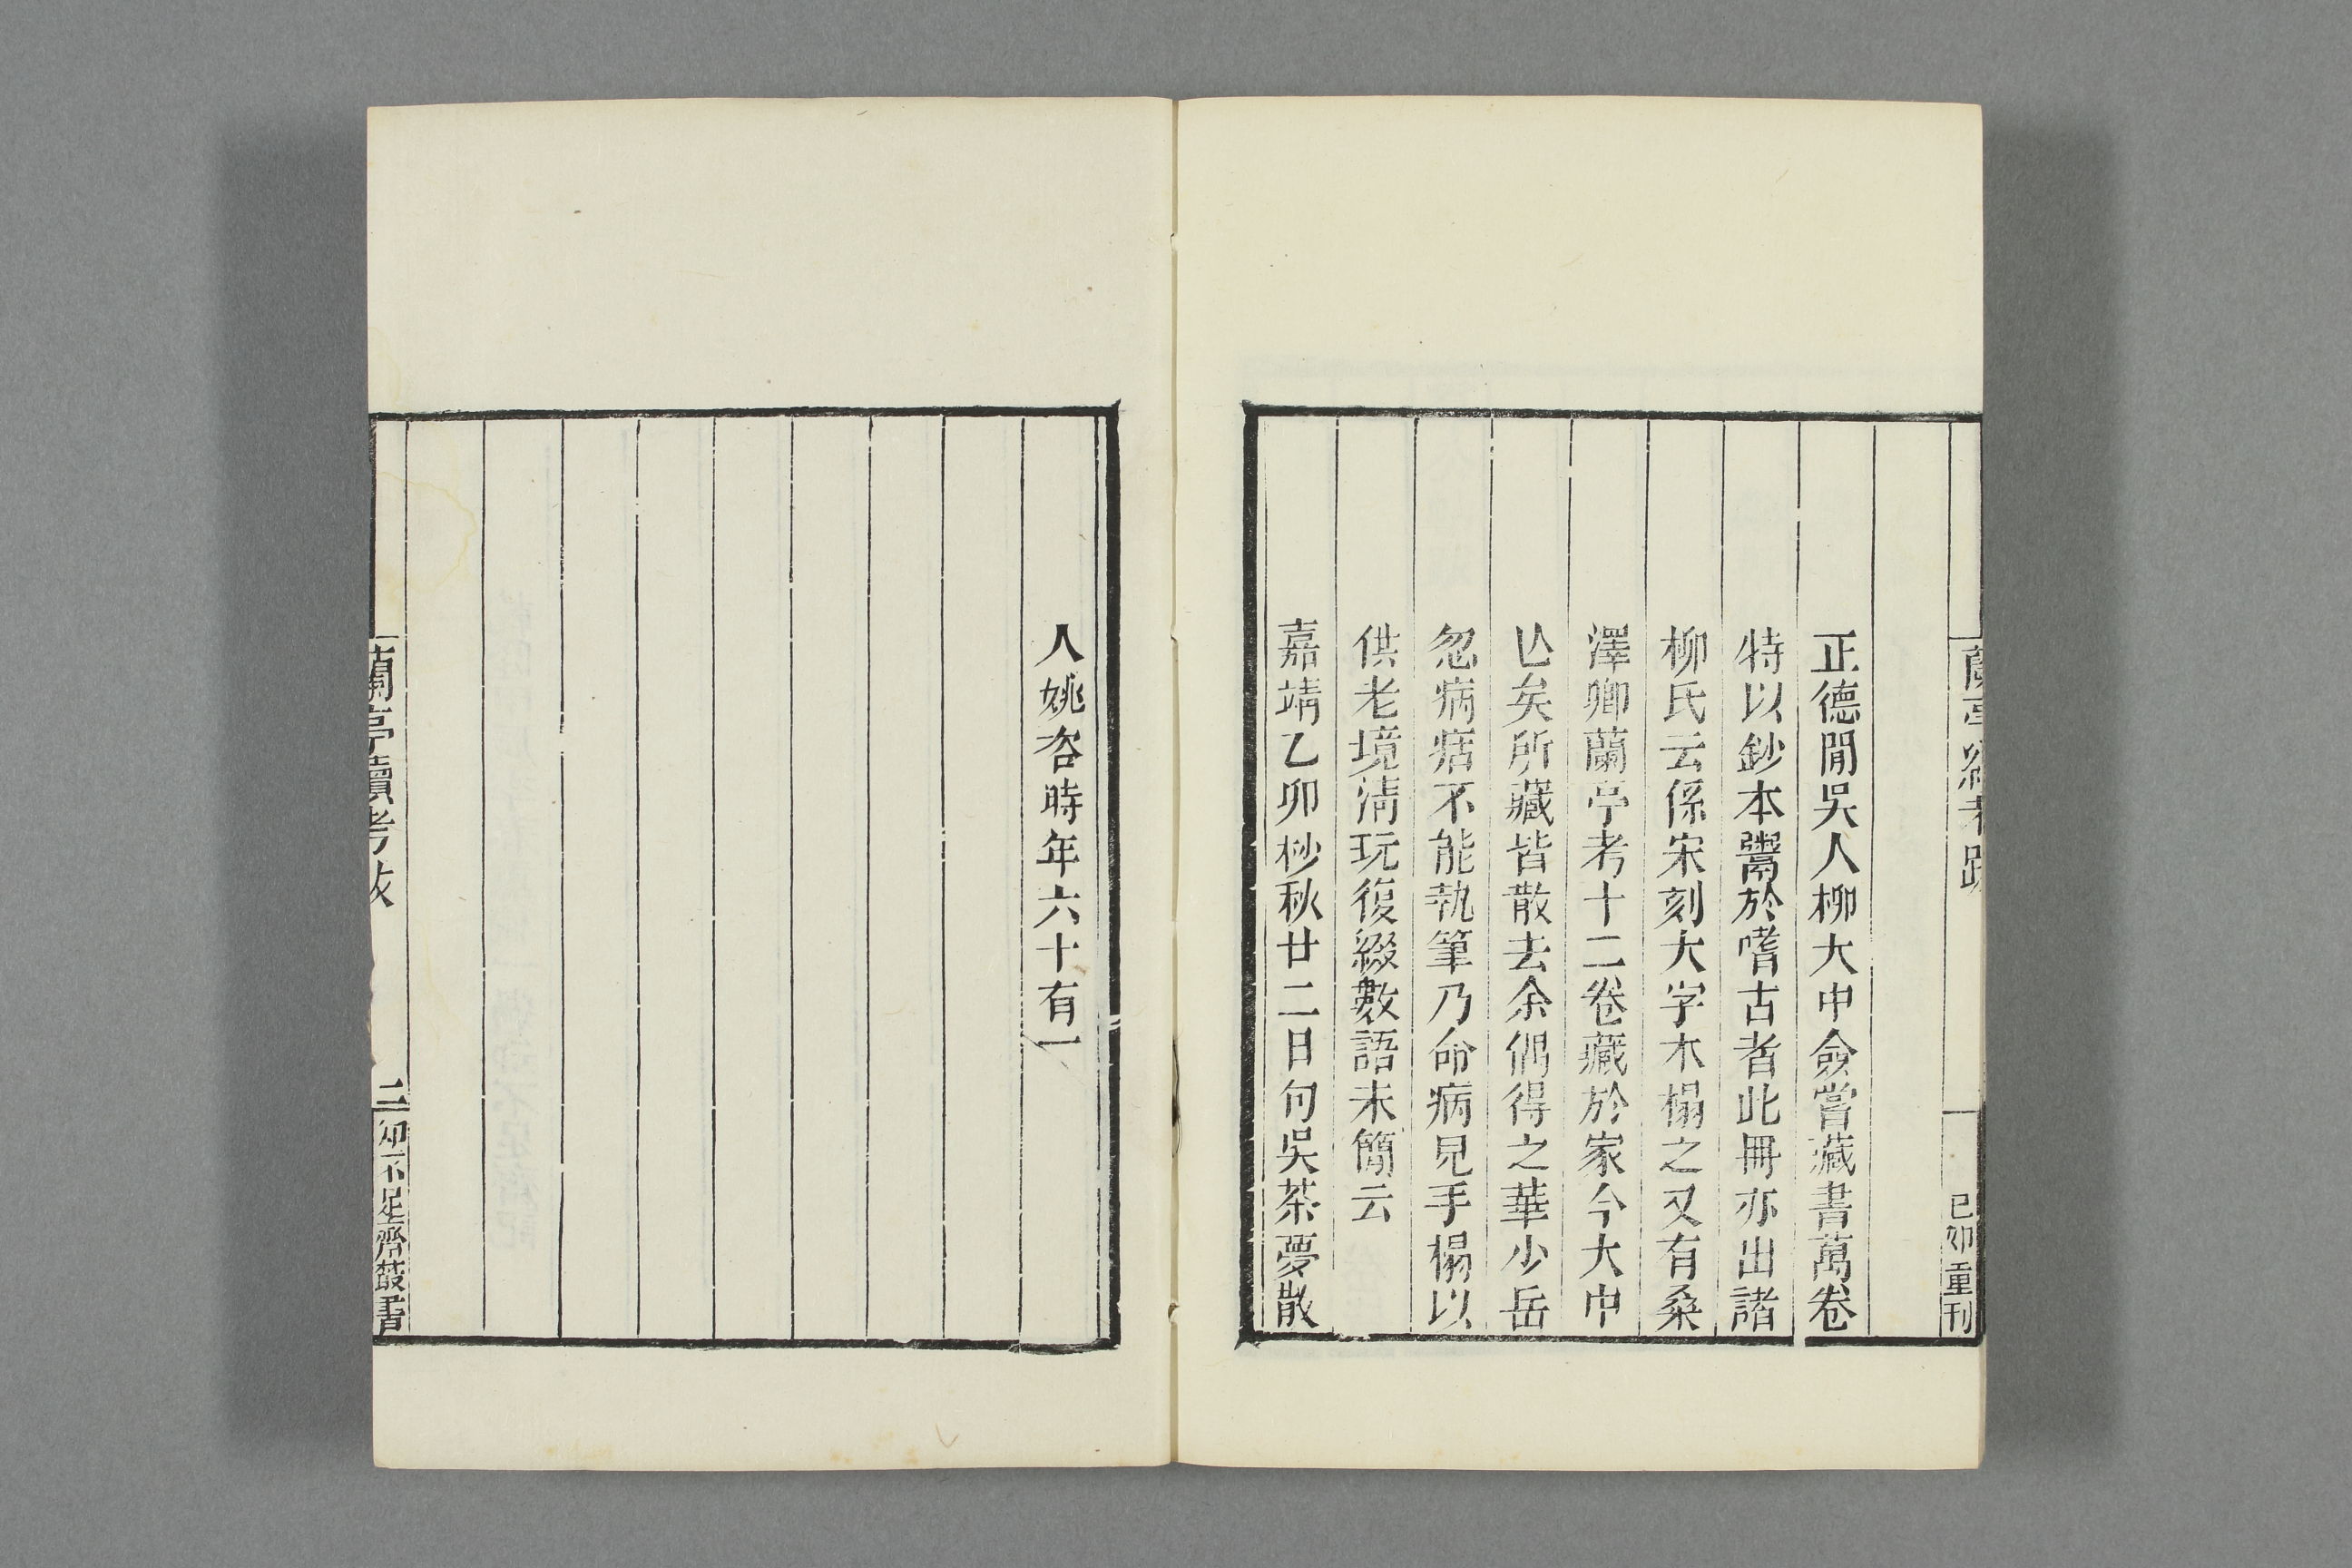 蘭亭續考跋
己卯重刊
正德閒吳人柳大中僉嘗藏書萬卷
特以鈔本鬻於嗜古者此冊亦出諸
柳氏云係宋刻大字木榻之又有桑
澤卿蘭亭考十二卷藏於家今大中
亾矣所藏皆散去余偶得之華少岳
忽病痞不能執筆乃命病見手榻以
供老境淸玩復綴數語末簡云
嘉靖乙卯杪秋廿二日句吳茶夢散
人姚咨時年六十有一
蘭亭續考跋
二
知不足齋叢書